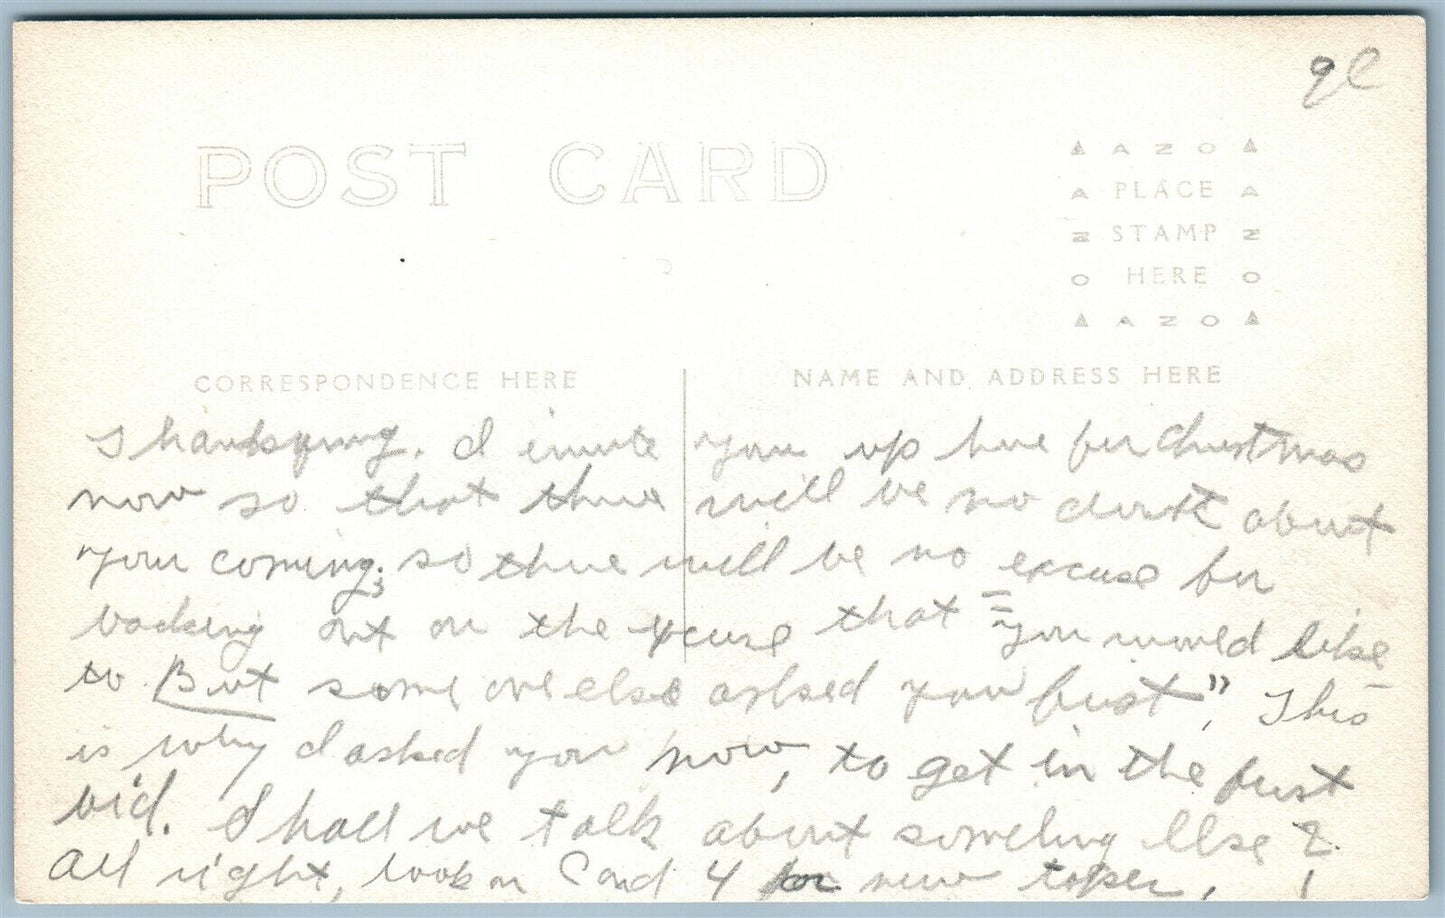 POST CARD
AZO
PLACE
STAMP
HERE
AZO
CORRESPONDENCE HERE
NAME AND ADDRESS HERE
Thanksgiving. I invite you up here for Christmas
now so that there will be no doubt about
your coming; so there will be no excuse for
backing out on the excuse that "you would like
to But some one else asked you first". This
is why I asked you now, to get in the first
bid. Shall we talk about someting else?
All right, look on Card 4 for new